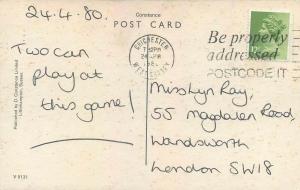 24.4.80.
Constance
POST CARD
Two can
play at
this game!
CHICHESTER
24 APR
1980
WEST SUSSEX
Be properly
addressed
POSTCODE IT
Miss Lyn Ray,
55 Magdalen Road,
Wandsworth
London SW18
Published by D. Constance Limited
Littlehampton, Sussex.
V 9131